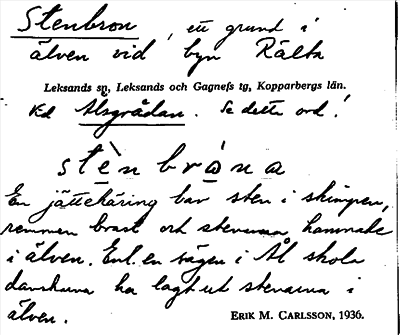 Stenbron, ett grund i
älven vid byn Rälta
Leksands sn, Leksands och Gagnefs tg, Kopparbergs län.
Vid Alsgrådan. Se detta ord!
stènbràna
En jättekäring bar sten i skinpen,
remmen brast och stenarna hamnade
i älven. Enl. en sägen i Ål skola
danskarna ha lagt ut stenarna i
älven.
ERIK M. CARLSSON, 1936.